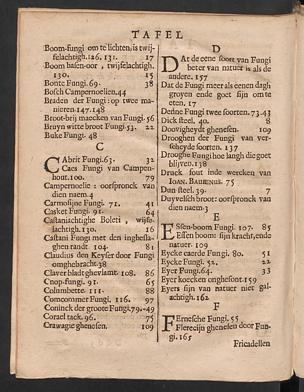 TAFEL
Boom-fungi om te lichten, is twij-
felachtigh.126, 131. 17
Boom hasen-oor, twijfelachtigh.
130. 15
Bonte Fungi.69. 38
Bosch Campernoelien.44
Braden der Fungi: op twe ma-
nieren.147.148
Broot-brij maecken van Fungi.56
Bruyn witte broot Fungi.53. 22
Buke Fungi. 48
C
CAbrit Fungi.63. 32
Caes Fungi van Campen-
hout.100. 79
Campernoelie: oorspronck van
dien naem.4
Carmosijne Fungi. 71. 41
Casket Fungi. 91. 64
Castaniachtighe Boleti, wijfe-
lachtigh.130. 16
Castani Fungi met den ingheslá-
ghen randt. 104. 81
Claudius den Keyser door Fungi
omghebracht.38
Claver bladtghevlamt. 108. 86
Cnop-fungi. 91. 65
Columbette. 111. 88
Comcommer Fungi. 116. 97
Coninck der groote Fungi.79.49
Corael tack. 96. 75
Crawagie ghenesen. 109
D
DAt de eene soort van Fungi
beter van natuer is als de
andere. 157
Dat de Fungi meer als eenen dagh
groyen ende goet sijn om te
eten. 17
Derline Fungi twee soorten.73.43
Dick steel. 40. 8
Doovigheyt ghenesen. 109
Drooghen der Fungi van ver-
scheyde soorten. 137
Drooghe Fungi hoe langh die goet
blijven.138
Druck fout inde wercken van
IOAN. BAUHINUS. 75
Dun steel.39. 7
Duyvelsch broot: oorspronck van
dien naem.3
E
ESsen-boom Fungi. 107. 85
Essen boom: sijn kracht, ende
natuer. 109
Eycke caerde Fungi. 80. 51
Eycke Fungi. 52. 22
Eyer Fungi.64. 33
Eyer koecken onghesont.159
Eyers sijn van natuer niet gal-
achtigh.162
F
FErnesche Fungi. 55
Flerecijn ghenesen door Fun-
gi.165
Fricadellen